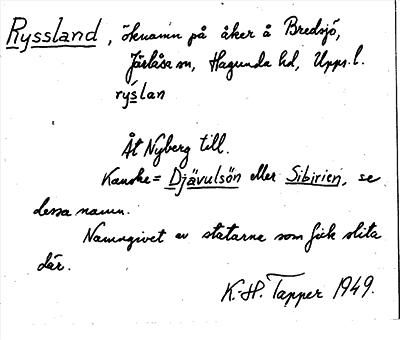 Ryssland, öknamn på åker å Bredsjö,
Järlåsa sn, Hagunda hd, Upps. l.
rýslan
Åt Nyberg till.
Kanske = Djävulsön eller Sibirien, se
dessa namn.
Namngivet av statarne som fick slita
där.
K.-H. Tapper 1949.